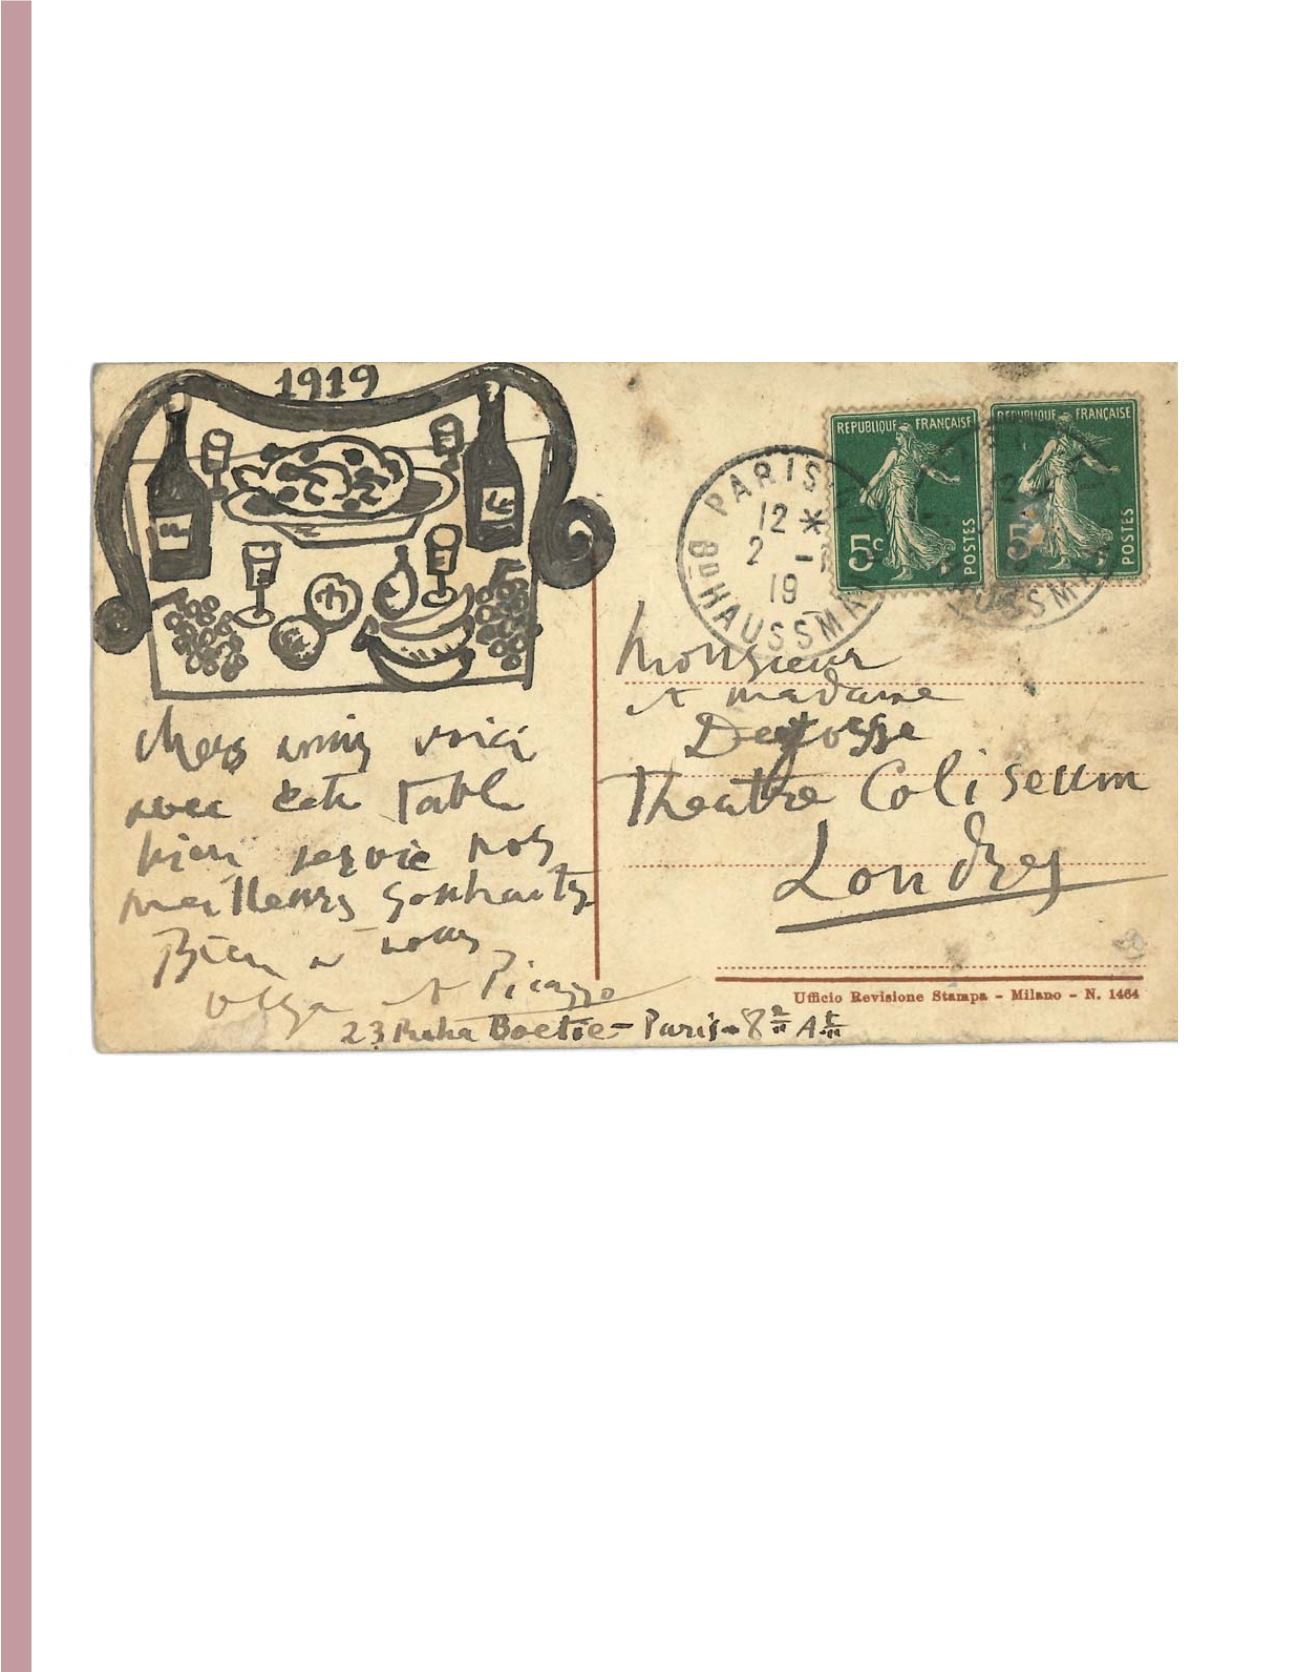 1919
chers amis voici
avec cete table
bien servie nos
meilleurs souhaits
Bien a vous
Olga et Picasso
23 Rue La Boetie - Paris - 8e Art
PARIS
12 *
2 -
19
Bd HAUSSMA
REPUBLIQUE FRANÇAISE
5c
POSTES
REPUBLIQUE FRANÇAISE
5
POSTES
USSMA
Monsieur
et madame
Theatre Coliseum
Londres
Ufficio Revisione Stampa - Milano - N. 1464